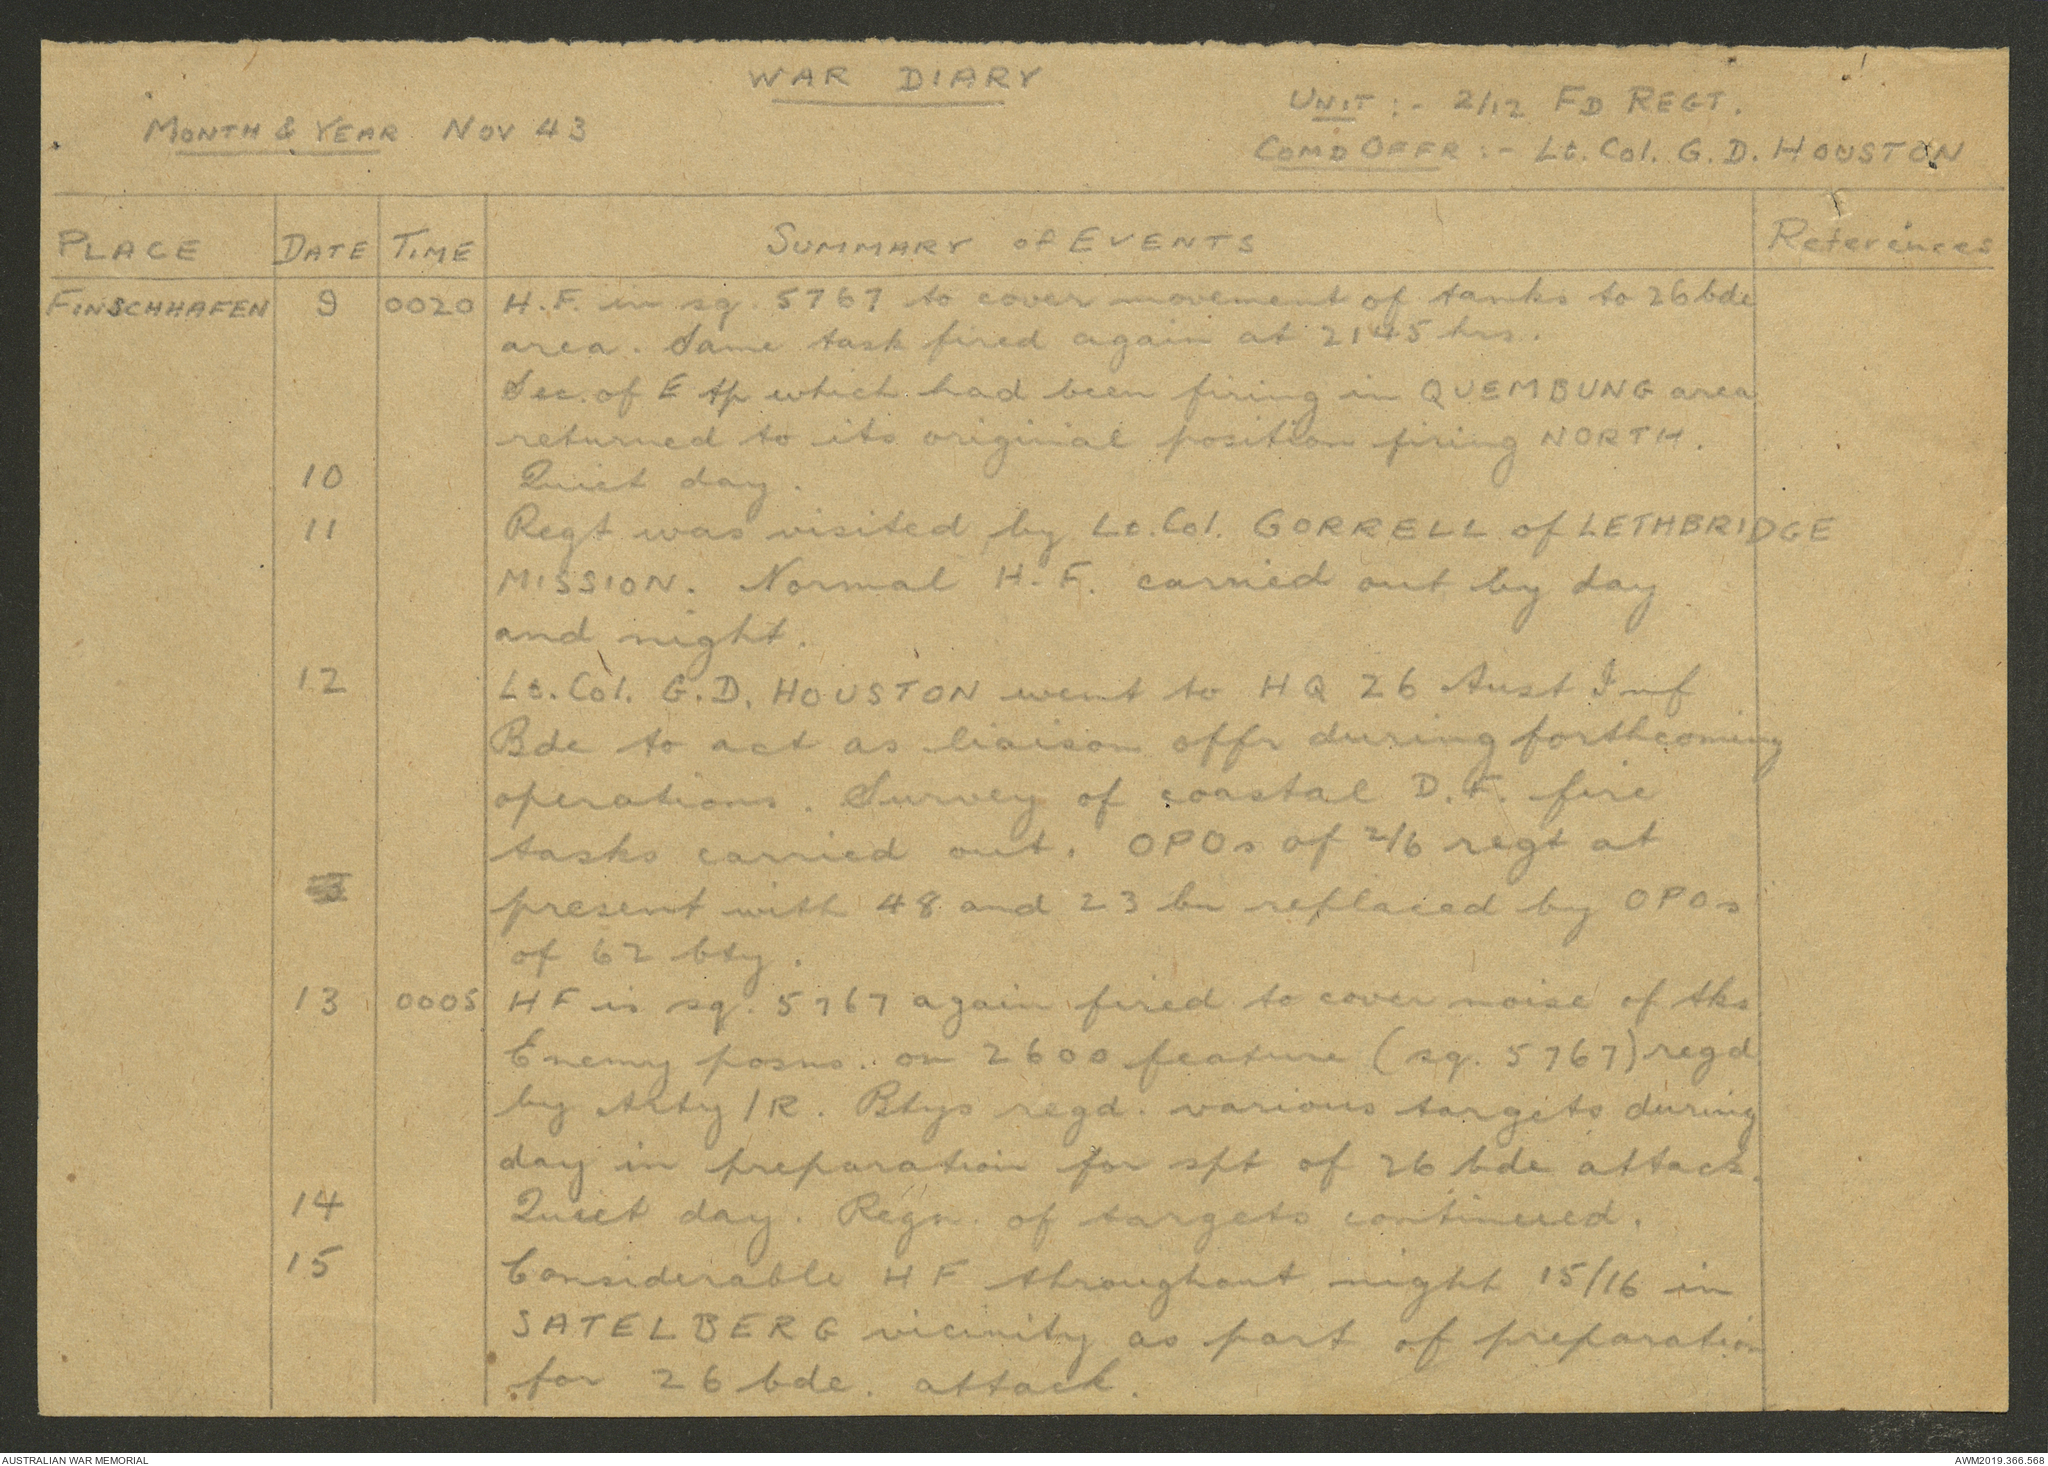 WAR DIARY
MONTH & YEAR NOV 43
UNIT :- 2/12 FD REGT.
COMD OFFR :- Lt. Col. G. D. HOUSTON
PLACE DATE TIME SUMMARY OF EVENTS References
FINSCHHAFEN 9 0020 H.F. in sq. 5767 to cover movement of tanks to 26 bde
area. Same task fired again at 2145 hrs.
Sec. of E tp which had been firing in QUEMBUNG area
returned to its original position firing NORTH.
10 Quiet day.
11 Regt was visited by Lt. Col. GORRELL of LETHBRIDGE
MISSION. Normal H.F. carried out by day
and night.
12 Lt. Col. G.D. HOUSTON went to HQ 26 Aust Inf
Bde to act as liaison offr during forthcoming
operations. Survey of coastal D.F. fire
tasks carried out. OPOs of 2/6 regt at
present with 48 and 23 bn replaced by OPOs
of 62 bty.
13 0005 HF in sq. 5767 again fired to cover noise of tks
Enemy posns. on 2600 feature (sq. 5767) regd
by Arty/R. Btys regd. various targets during
day in preparation for spt of 26 bde attack.
14 Quiet day. Regn. of targets continued.
15 Considerable HF throughout night 15/16 in
SATELBERG vicinity as part of preparation
for 26 bde. attack.
AUSTRALIAN WAR MEMORIAL
AWM2019.366.568